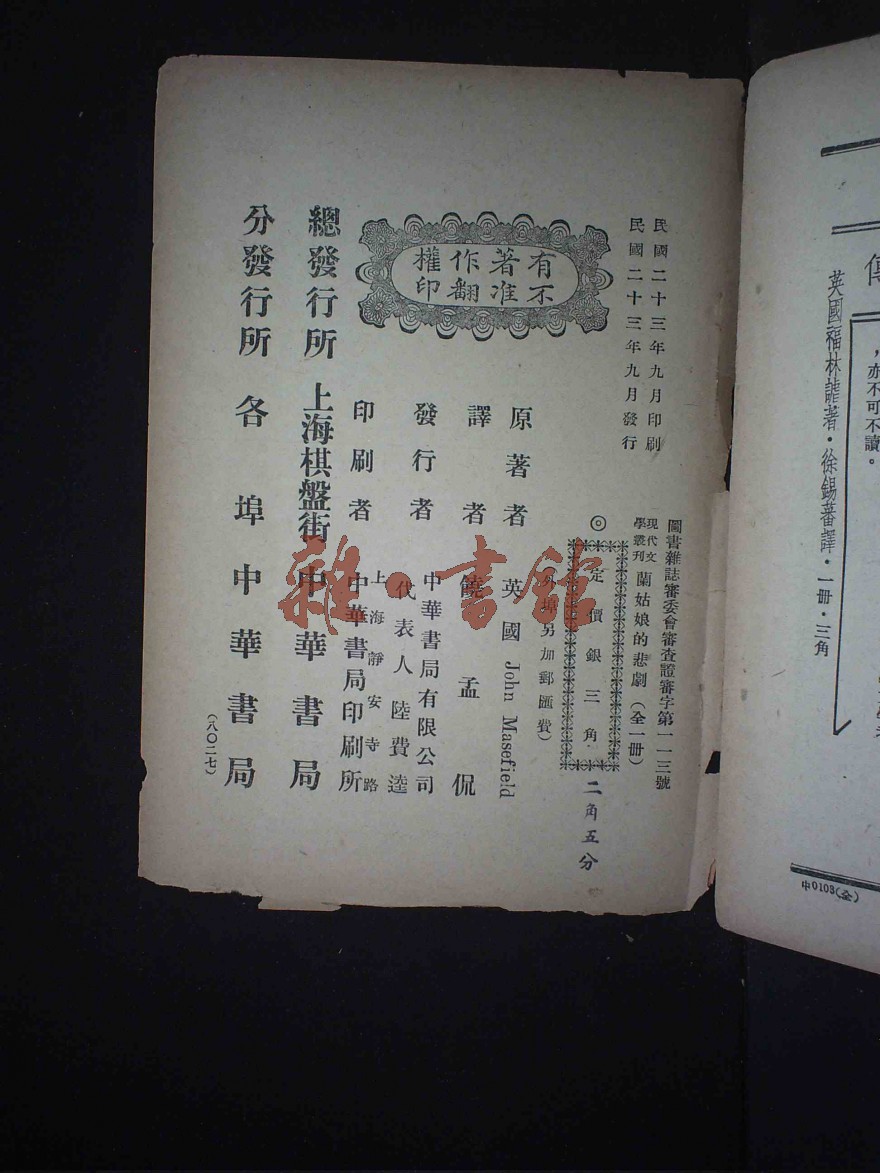 民國二十三年九月印刷
民國二十三年九月發行
有不著准作翻權印
圖書雜誌審委會審查證審字第一一三號
現代文學叢刊 蘭姑娘的悲劇(全一册)
◎定價銀三角 二角五分
(外埠另加郵匯費)
原著者 英國 John Masefield
譯者 饒孟侃
發行者 中華書局有限公司
代表人 陸費逵
印刷者 上海靜安寺路
中華書局印刷所
總發行所 上海棋盤街 中華書局
分發行所 各埠中華書局
(八〇二七)
雜·書館
,亦不可不讀。
英國福林謔著·徐錫蕃譯·一册·三角
中0103(全)